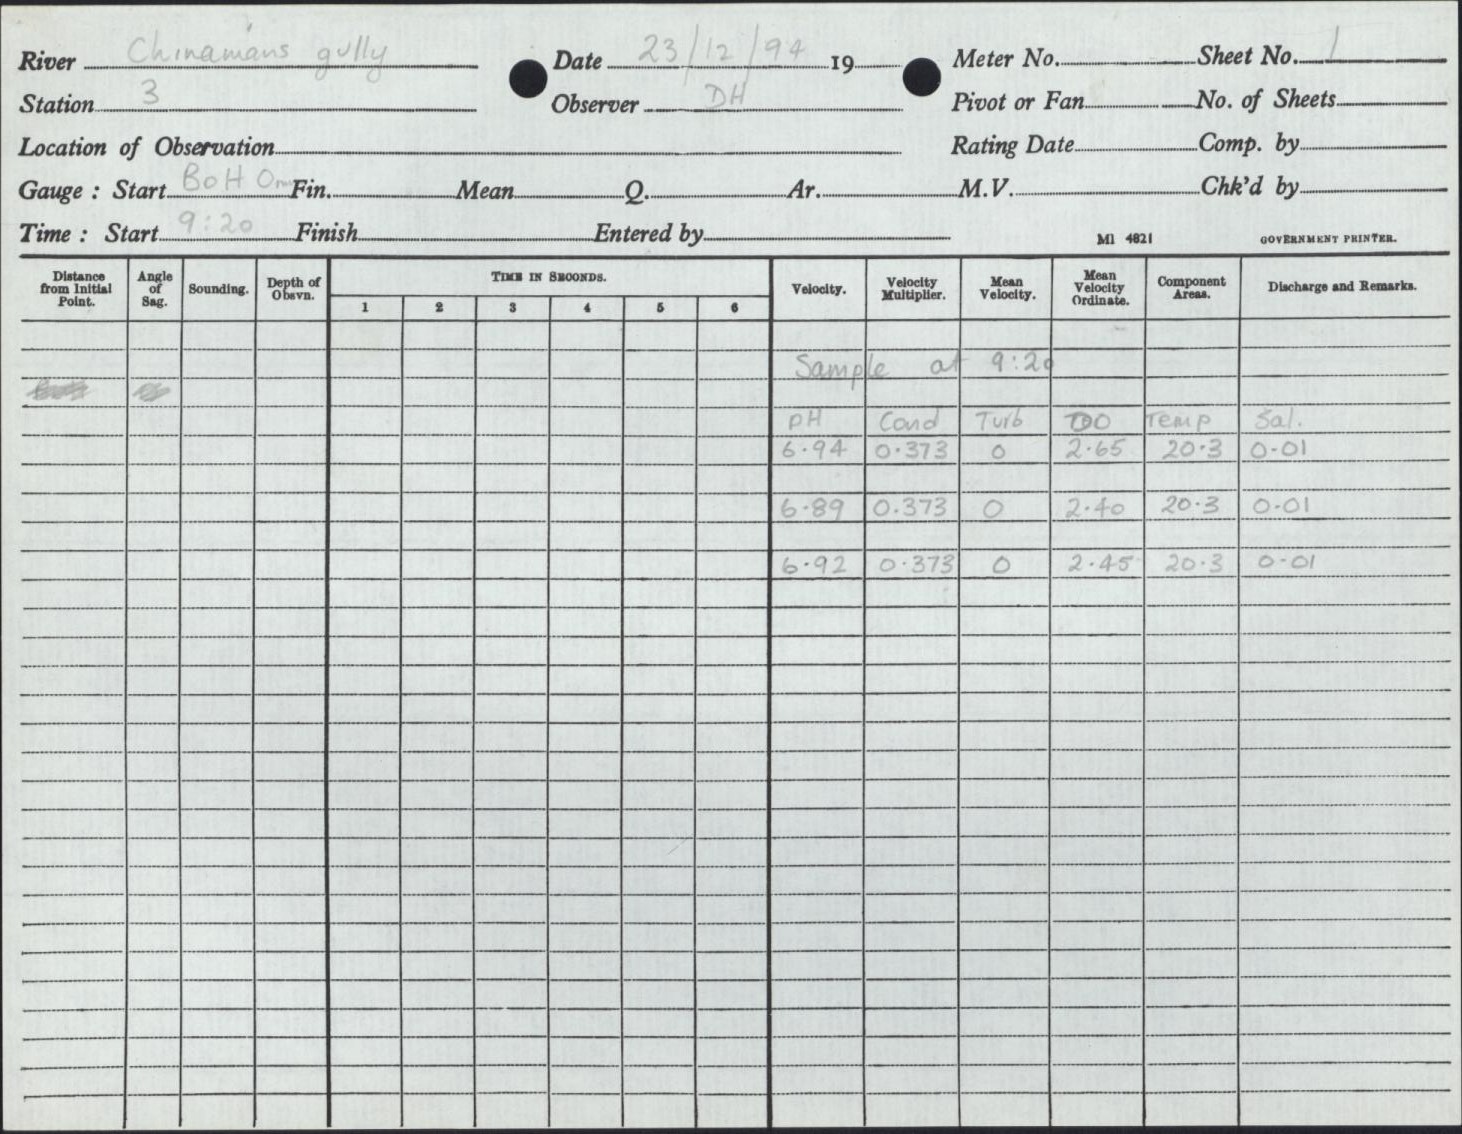 River Chinamans gully Date 23/12/94 19 Meter No. Sheet No. 1
Station 3 Observer DH Pivot or Fan No. of Sheets
Location of Observation Rating Date Comp. by
Gauge : Start BoH 0 Fin. Mean Q. Ar. M.V. Chk'd by
Time : Start 9:20 Finish Entered by
Ml 4821 GOVERNMENT PRINTER.
Distance from Initial Point. Angle of Sag. Sounding. Depth of Obsvn. TIME IN SECONDS. Velocity. Velocity Multiplier. Mean Velocity. Mean Velocity Ordinate. Component Areas. Discharge and Remarks.
1 2 3 4 5 6
Sample at 9:20
pH Cond Turb DO Temp Sal.
6.94 0.373 0 2.65 20.3 0.01
6.89 0.373 0 2.40 20.3 0.01
6.92 0.373 0 2.45 20.3 0.01